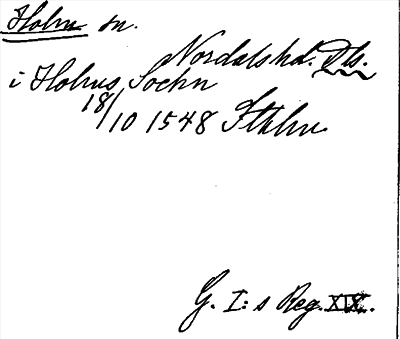 Holm sn.
Nordalshd. Dls.
i Holms Sochn
18/10 1548 Sthlm
G. I:s Reg. XIX.